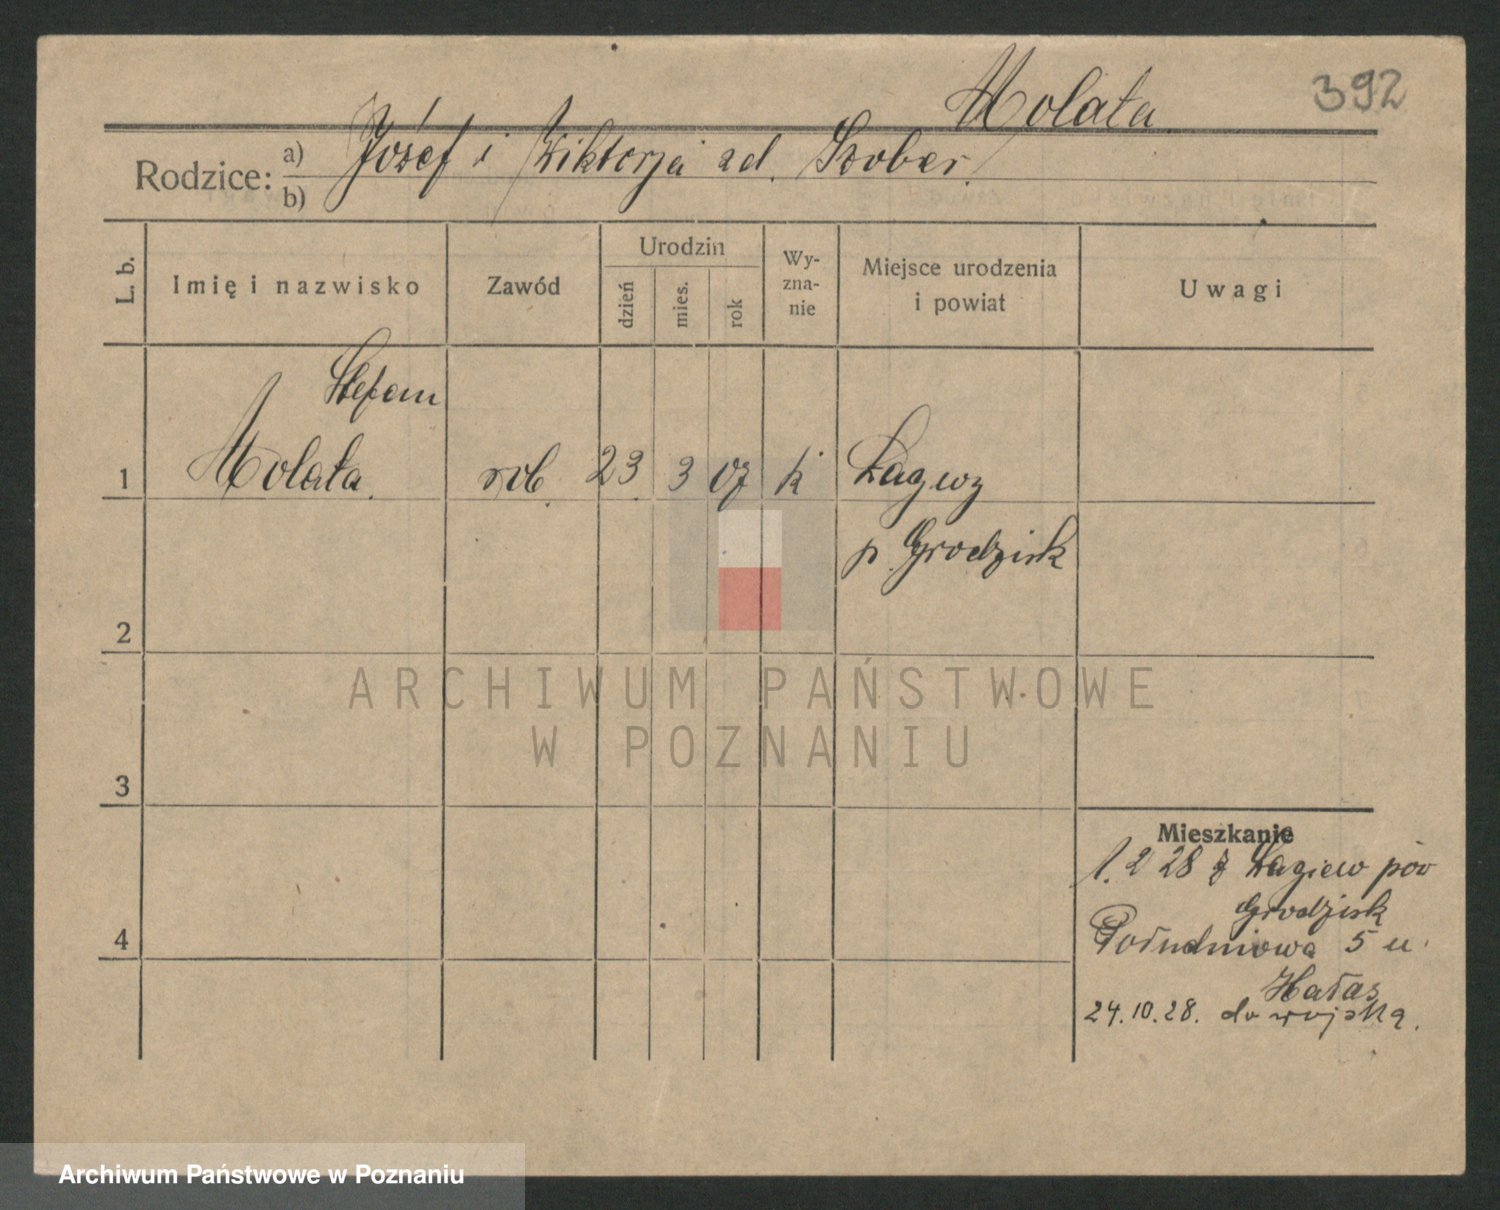 Molata
392
Rodzice: a) Józef i Wiktorja zd. Szober.
b)
L. b.
Imię i nazwisko
Zawód
Urodzin
dzień
mies.
rok
Wy-
zna-
nie
Miejsce urodzenia
i powiat
Uwagi
Stefan
1 Molata. rob. 23 3 07 k Łagwy
p. Grodzisk
2
3
4
Mieszkanie
1. 2 28 z pow
Grodzisk
Południowa 5 u.
Hałas
24.10.28. do wojska.
ARCHIWUM PAŃSTWOWE
W POZNANIU
Archiwum Państwowe w Poznaniu